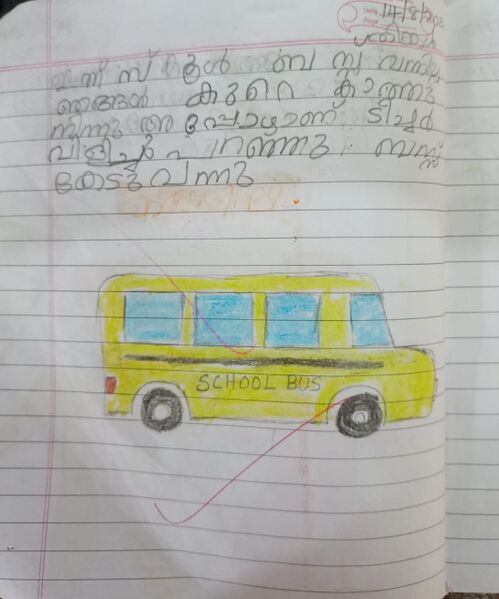 14/8/202
ഇന്ന് സ്കൂൾ ബസ്സ് വന്നില്ല
ഞങ്ങൾ കുറെ കാത്തു
നിന്നു അപ്പോഴാണ് ടീച്ചർ
വിളിച്ചു പറഞ്ഞത് ബസ്സ്
കേടു വന്നു
SCHOOL BUS